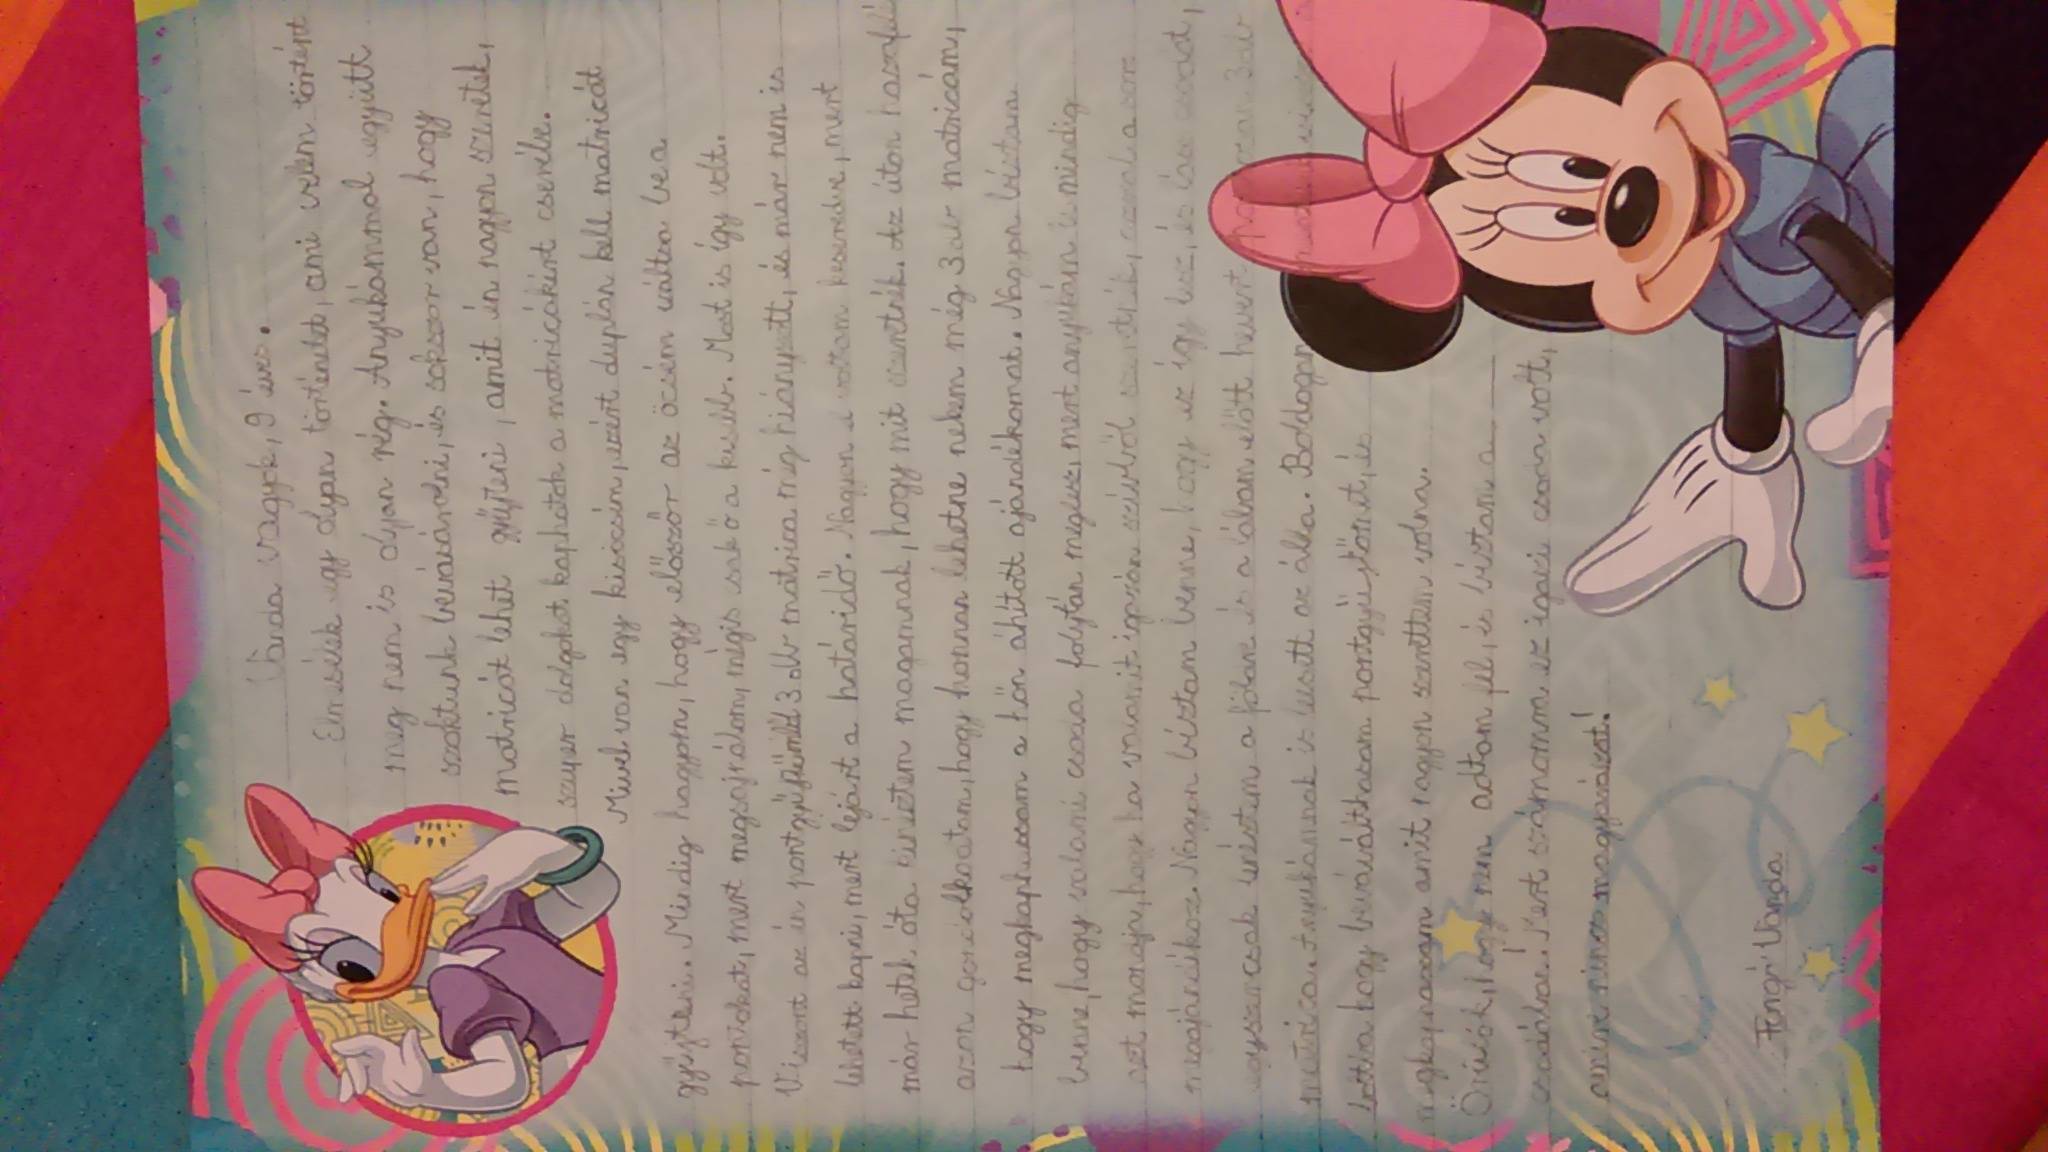 Vanda vagyok, 9 éves.
Elmesélek egy olyan történetet, ami velem történt
meg nem is olyan rég. Anyukámmal együtt
szoktunk bevásárolni, és sokszor van, hogy
matricát lehet gyűjteni, amit én nagyon szeretek,
szuper dolgokat kaphatok a matricákért cserébe.
Mivel van egy kisöcsém, ezért duplán kell matricát
gyűjteni. Mindig hagyom, hogy először az öcsém váltsa be a
pontokat, mert megsajnálom, mégis csak ő a kisebb. Most is így volt.
Viszont az én pontgyűjtőmből 3 db matrica még hiányzott, és már nem is
lehetett kapni, mert lejárt a határidő. Nagyon el voltam keseredve, mert
már hetek óta kinéztem magamnak, hogy mit szeretnék. Az úton hazafelé
azon gondolkoztam, hogy honnan lehetne nekem még 3 db matricám,
hogy megkaphassam a hőn áhított ajándékomat. Nagyon bíztam
benne, hogy valami csoda folytán meglesz, mert anyukám is mindig
azt mondja, hogy ha valamit igazán szívből szeretnék,
megajándékoz. Nagyon bíztam benne, hogy ez így lesz, és láss csodát,
egyszercsak lenéztem a földre és a lábam előtt hevert 3 db
matrica. Anyukámnak is leesett az álla. Boldogan
hogy beválthatom pontgyűjtőmet, és
megkaphassam amit nagyon szerettem volna.
Örülök, hogy nem adtam fel, és bíztam a
csodában. Mert számomra ez igazi csoda volt,
amire nincs magyarázat!
Fengó Vanda